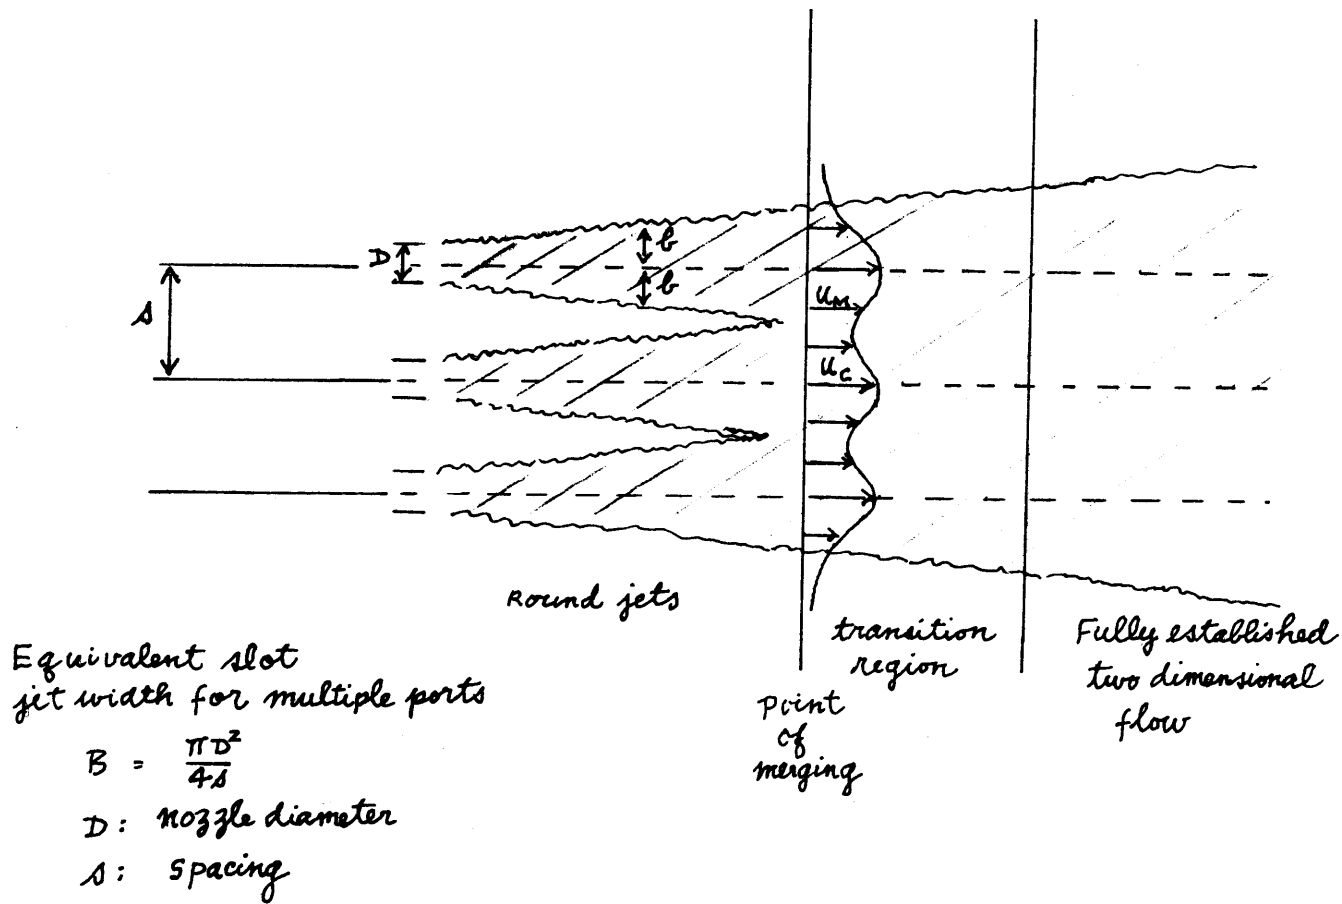 D
b
b
s
u_M
u_c
Round jets
transition
region
Fully established
two dimensional
flow
Point
of
merging
Equivalent slot
jet width for multiple ports
B = πD²/4s
D: nozzle diameter
s: spacing